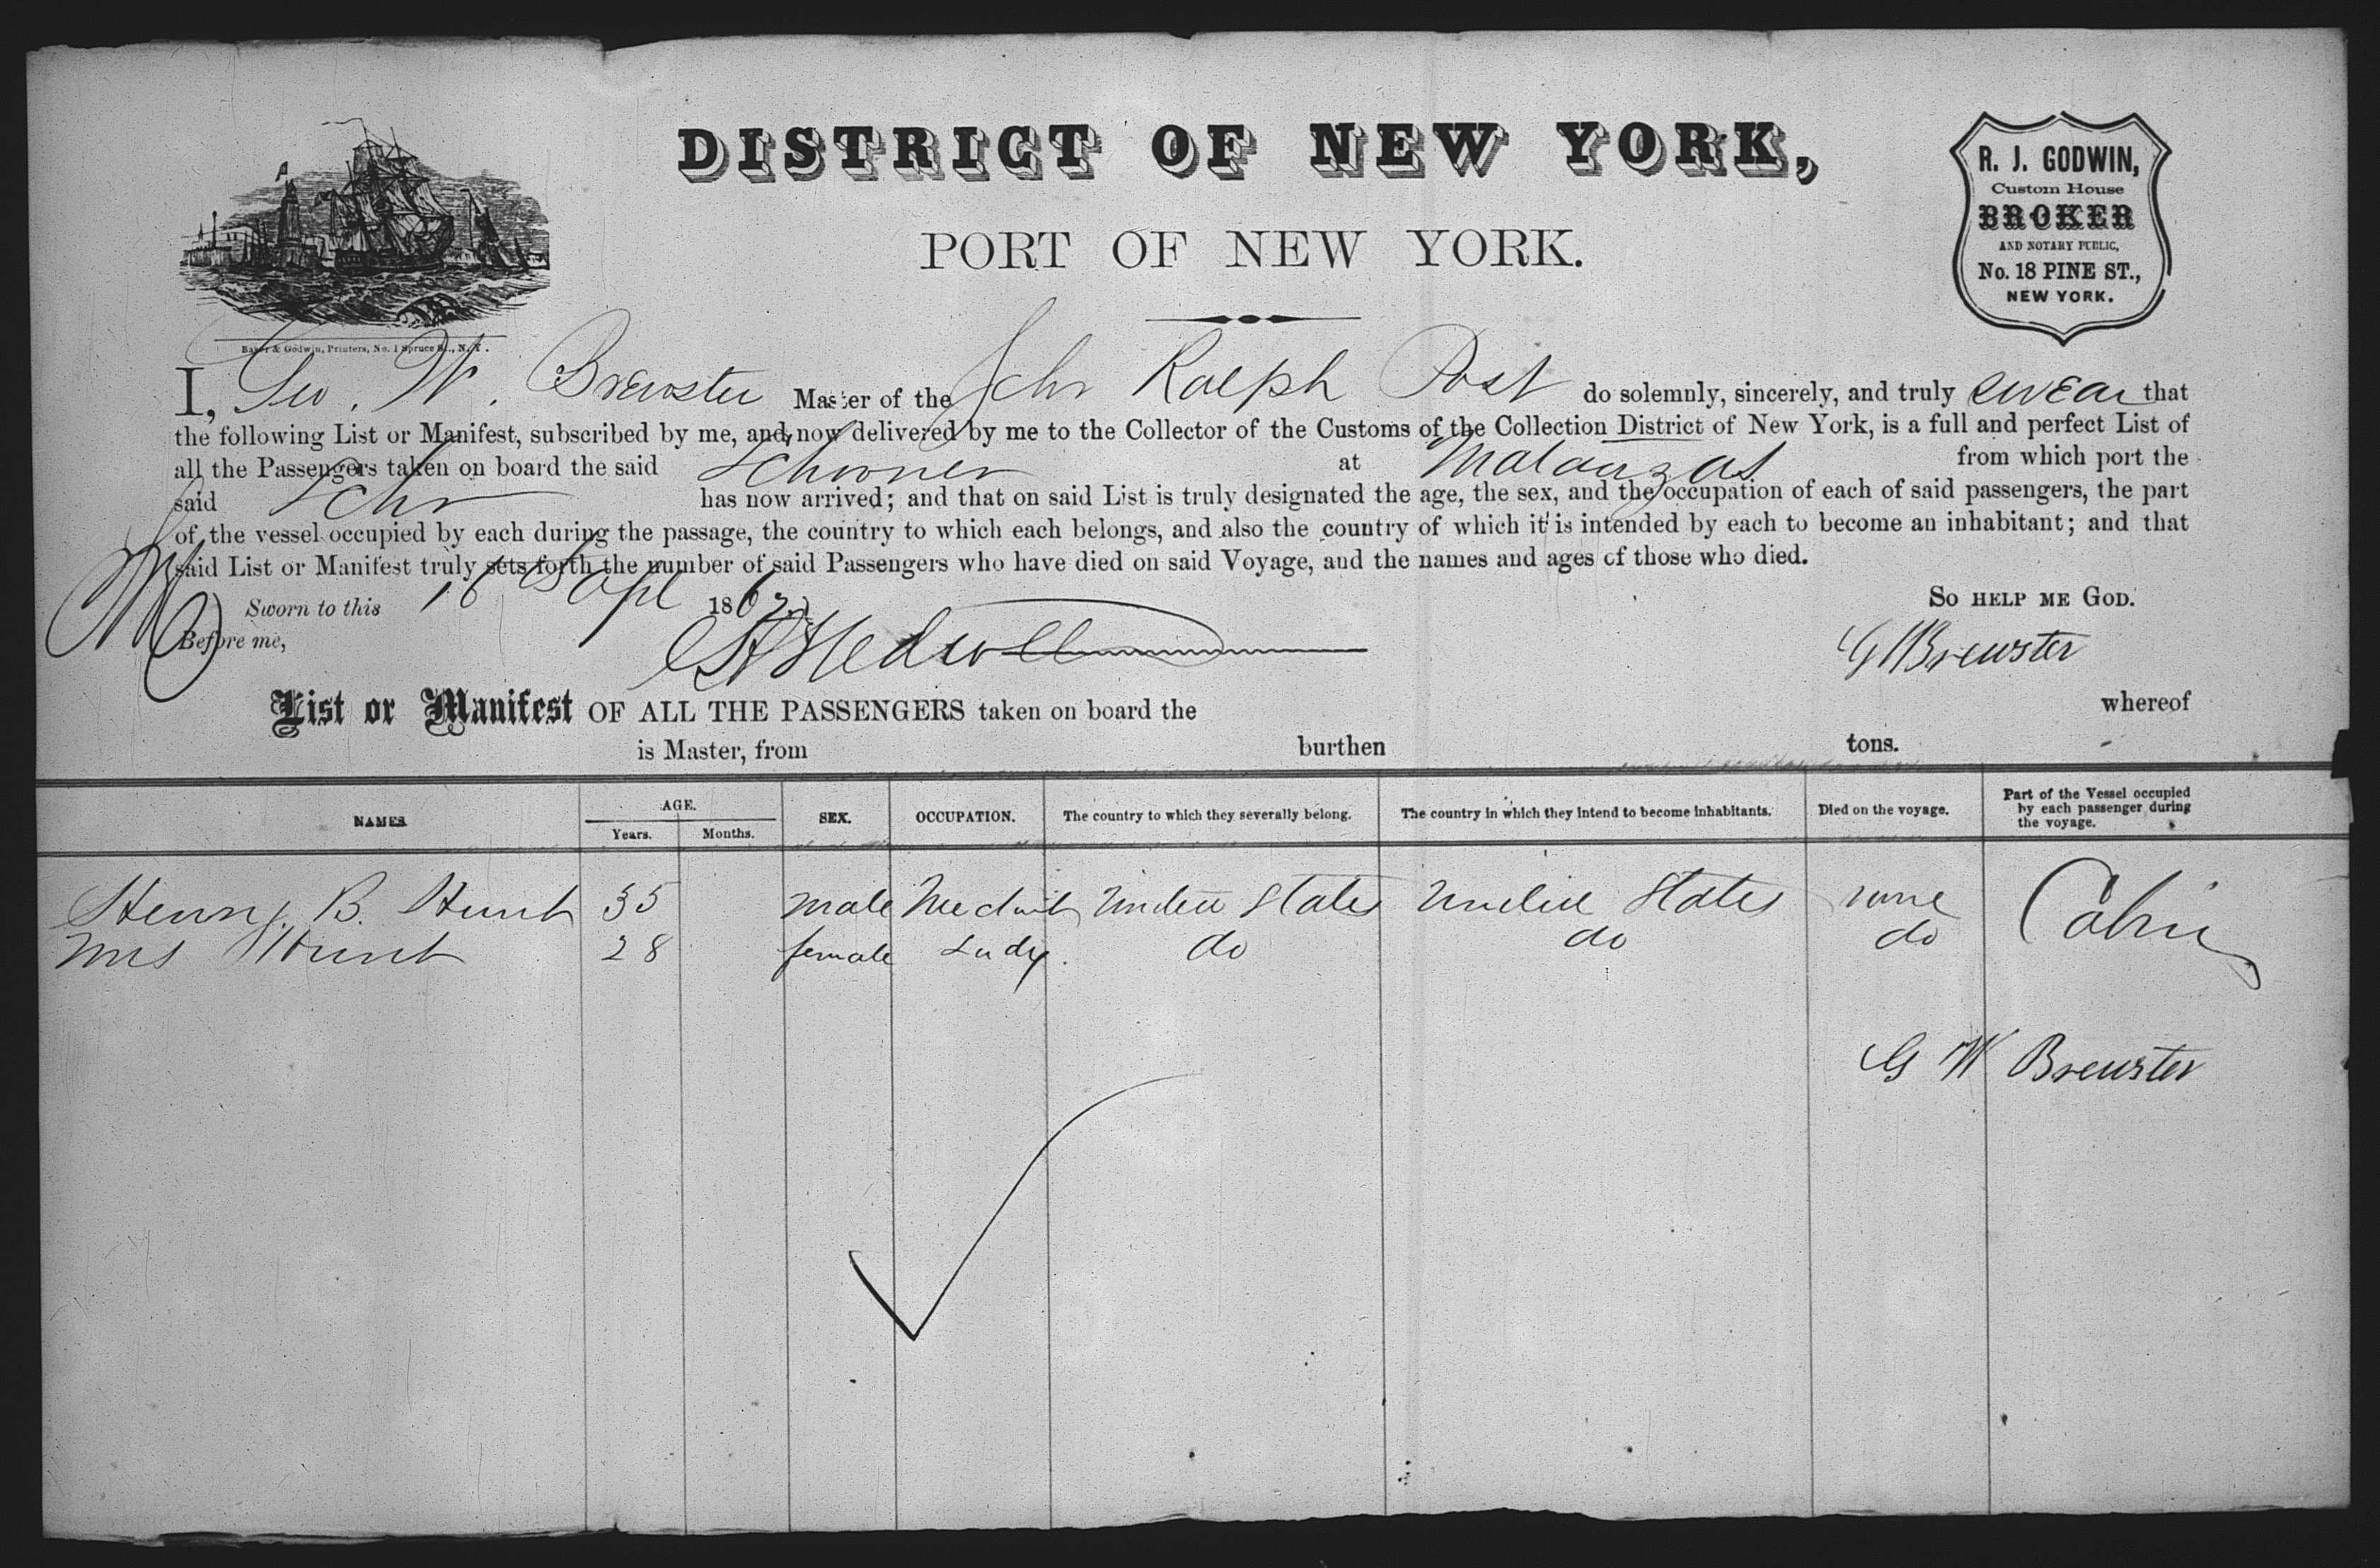 DISTRICT OF NEW YORK,
PORT OF NEW YORK.
R. J. GODWIN,
Custom House
BROKER
AND NOTARY PUBLIC,
No. 18 PINE ST.,
NEW YORK.
Baker & Godwin, Printers, No. 1 Spruce St., N.Y.
I, Geo. W. Brewster Master of the Schr Ralph Post do solemnly, sincerely, and truly swear that
the following List or Manifest, subscribed by me, and now delivered by me to the Collector of the Customs of the Collection District of New York, is a full and perfect List of
all the Passengers taken on board the said Schooner at Matanzas from which port the
said Schr has now arrived; and that on said List is truly designated the age, the sex, and the occupation of each of said passengers, the part
of the vessel occupied by each during the passage, the country to which each belongs, and also the country of which it is intended by each to become an inhabitant; and that
said List or Manifest truly sets forth the number of said Passengers who have died on said Voyage, and the names and ages of those who died.
Sworn to this 16 Sept 186
So HELP ME GOD.
Before me,
G W Brewster
List or Manifest OF ALL THE PASSENGERS taken on board the whereof
is Master, from burthen tons.
NAMES AGE. SEX. OCCUPATION. The country to which they severally belong. The country in which they intend to become inhabitants. Died on the voyage. Part of the Vessel occupied by each passenger during the voyage.
Years. Months.
Henry B. Hunt 35 male United States United States none Cabin
Mrs Hunt 28 female Lady do do do
G W Brewster